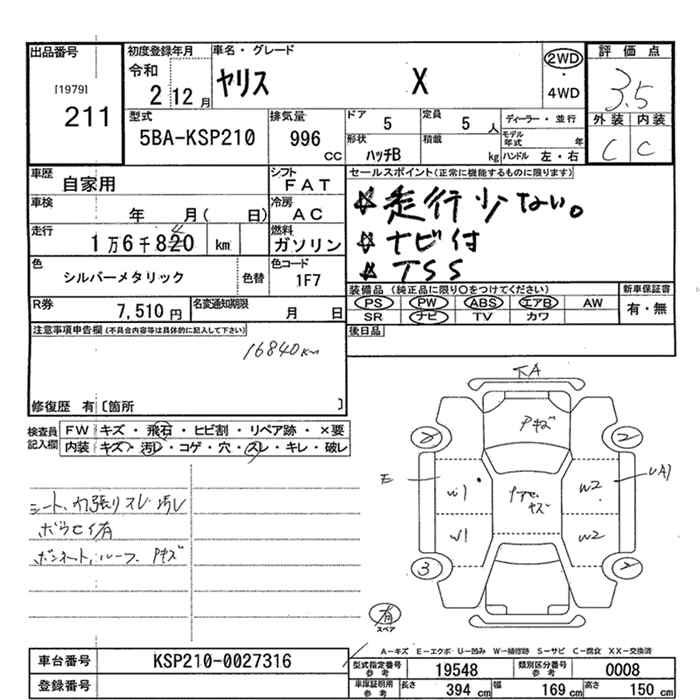 出品番号
[1979]
211
初度登録年月
令和
2 12月
車名・グレード
ヤリス X
2WD
・
4WD
評価点
3.5
外装 内装
C C
型式
5BA-KSP210
排気量
996
CC
ドア
5
定員
5 人
形状
ハッチB
積載
kg
ディーラー・並行
モデル年式 年
ハンドル 左・右
車歴
自家用
シフト
FAT
車検
年 月( 日)
冷房
AC
走行
1万6千820 km
4
燃料
ガソリン
色
シルバーメタリック
色替
色コード
1F7
R券
7,510 円
名変通知期限
月 日
セールスポイント(正常に機能するものに限ります)
☆走行少ない。
☆ナビ付
☆TSS
装備品(純正品に限り○をつけてください)
PS PW ABS エアB AW
SR ナビ TV カワ
新車保証書
有・無
後日品
注意事項申告欄(不具合内容等は具体的に記入して下さい)
16840km
修復歴 有〔箇所 〕
検査員記入欄
FW キズ・飛石・ヒビ割・リペア跡・×要
内装 キズ・汚レ・コゲ・穴・スレ・キレ・破レ
シート、内張りスレ汚レ
ボンネット、ルーフ Aキズ
Aキズ
2 2
E
W1 W2
W2
3 2
有
スペア
A−キズ E−エクボ U−凹み W−補修跡 S−サビ C−腐食 XX−交換済
車台番号
KSP210-0027316
登録番号
型式指定番号 参考
19548
類別区分番号 参考
0008
車庫証明用 参考
長さ 394 cm
幅 169 cm
高さ 150 cm